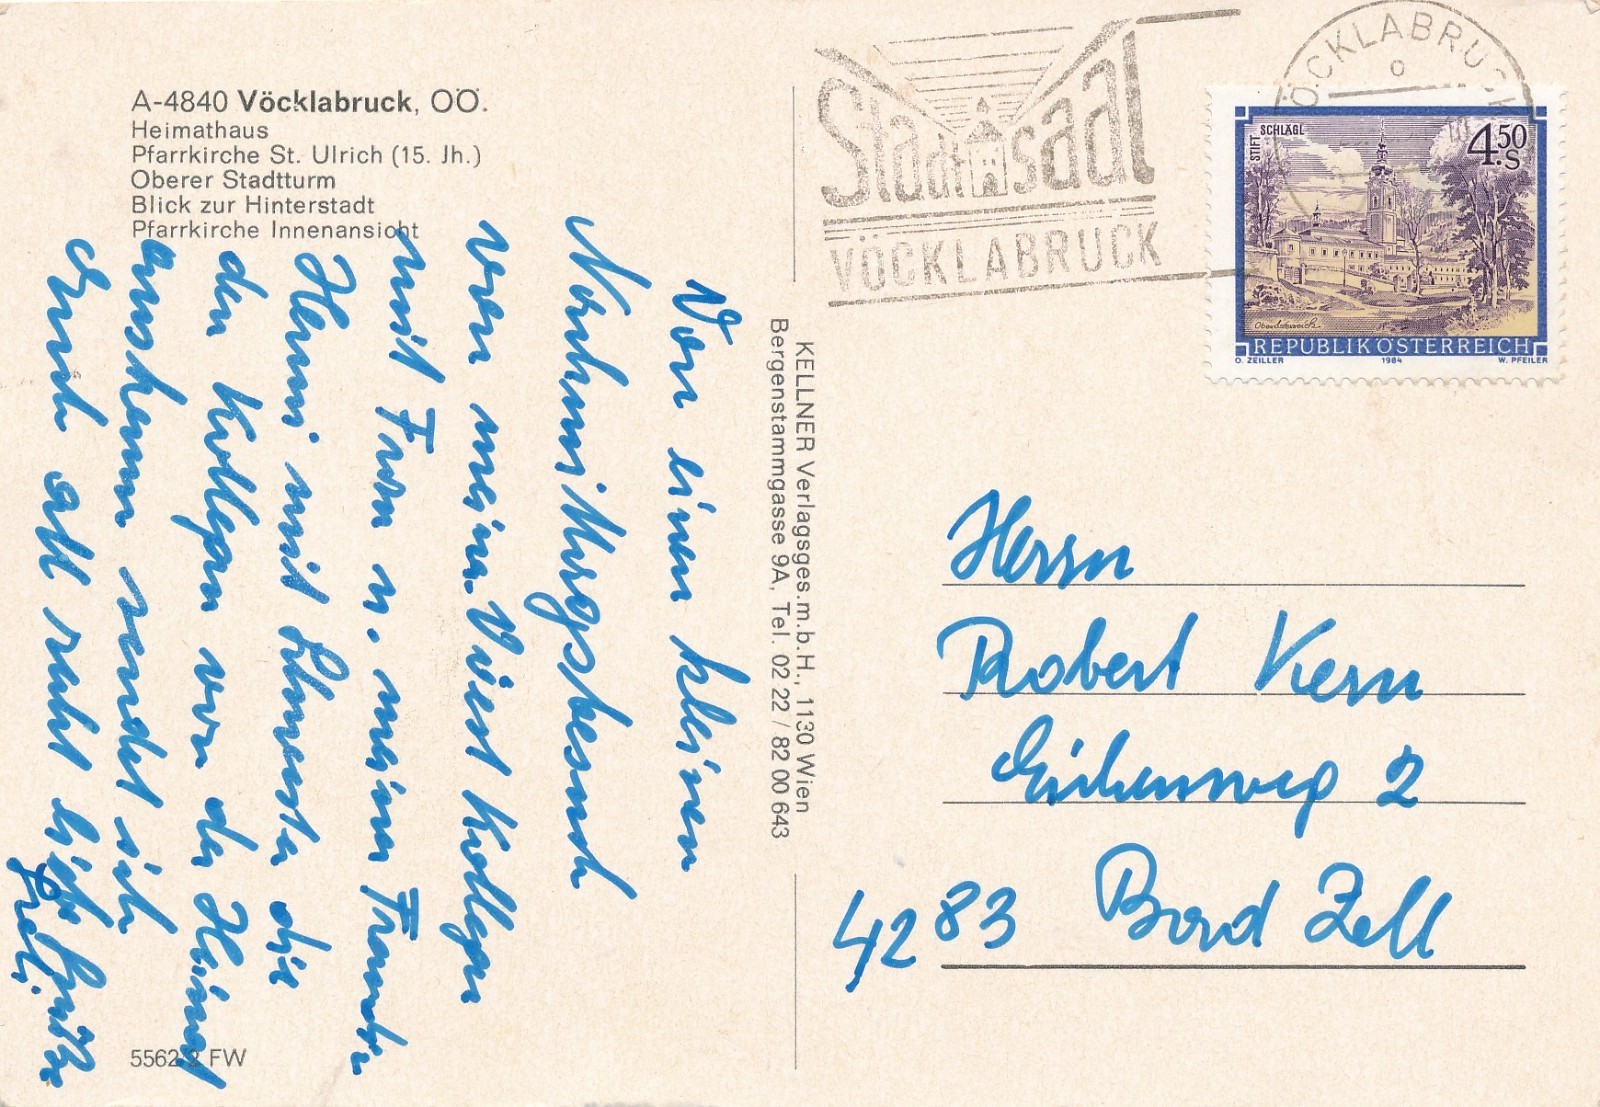 A-4840 Vöcklabruck, OÖ.
Heimathaus
Pfarrkirche St. Ulrich (15. Jh.)
Oberer Stadtturm
Blick zur Hinterstadt
Pfarrkirche Innenansicht
Von einem kleinen
Nachmittagsbesuch
von meinen
mit Frau u. meiner
Herrn mit die
den Kollegen von der Heimat
anschauen sendet sich
Euch all recht liebe Grüße
5562/2 FW
KELLNER Verlagsges.m.b.H., 1130 Wien
Bergenstammgasse 9A, Tel. 02 22 / 82 00 643
Stadtsaal
VÖCKLABRUCK
VÖCKLABRUCK
STIFT SCHLÄGL
4.50 S
Oberösterreich
REPUBLIK ÖSTERREICH
O. ZEILLER 1984 W. PFEILER
Herrn
Robert Kern
Eichenweg 2
4283 Bad Zell